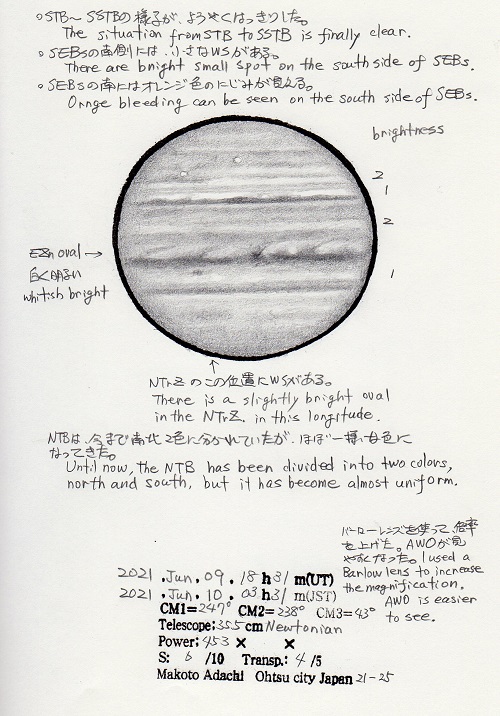 ○STB～SSTBの様子が、ようやくはっきりした。
The situation from STB to SSTB is finally clear.
○SEBsの南側には、小さなWSがある。
There are bright small spot on the south side of SEBs.
○SEBsの南にはオレンジ色のにじみが見える。
Ornge bleeding can be seen on the south side of SEBs.
brightness
2
1
2
1
EZn oval →
白く明るい
whitish bright
↑
NTrZ のこの位置にWSがある。
There is a slightly bright oval
in the NTrZ. in this longitude.
NTBは、今まで南北2色に分かれていたが、ほぼ一様な色に
なってきた。
Until now, the NTB has been divided into two colors,
north and south, but it has become almost uniform.
バーローレンズを使って、倍率
を上げた。AWOが見
やすくなった。I used a
Barlow lens to increase
the magnification.
AWO is easier
to see.
2021 . Jun. 09 . 18 h 31 m(UT)
2021 . Jun. 10 . 03 h 31 m(JST)
CM1=247° CM2=238° CM3=43°
Telescope; 35.5 cm Newtonian
Power; 453 × ×
S: 6 /10 Transp.: 4 /5
Makoto Adachi Ohtsu city Japan 21-25